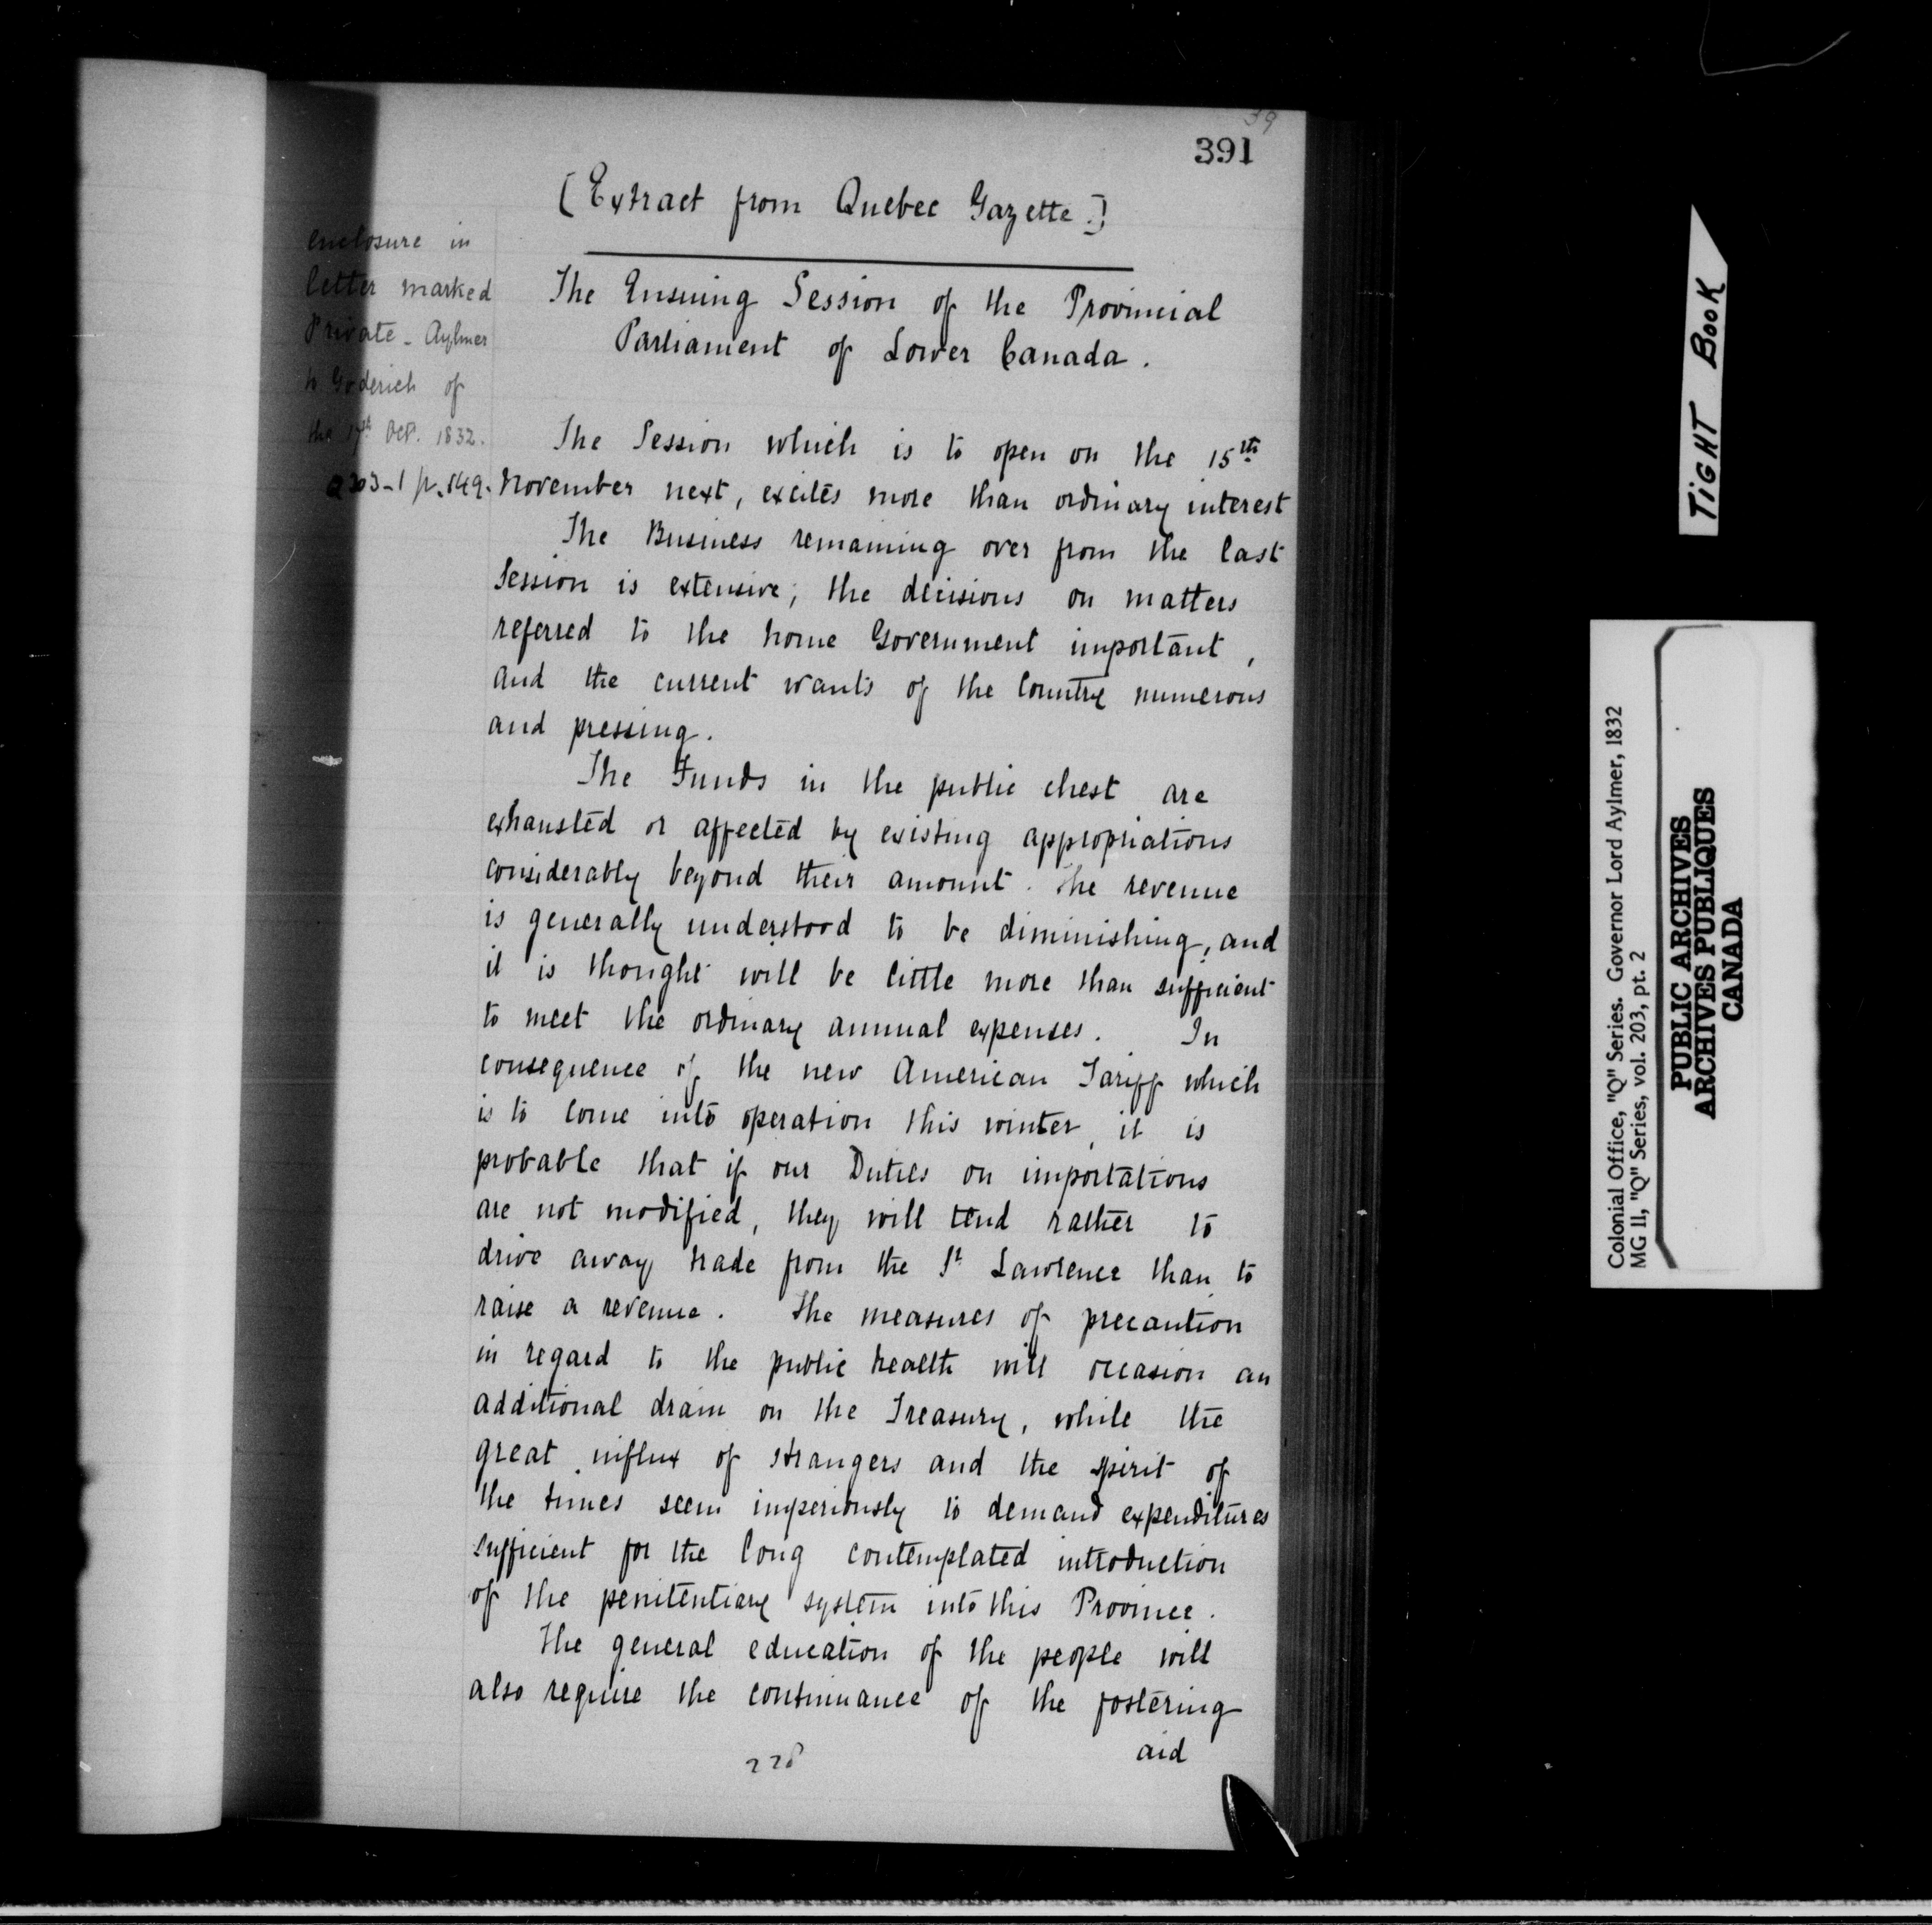 39
391
[Extract from Quebec Gazette.]
enclosure in
letter marked
Private - Aylmer
to Goderich of
the 17th Oct. 1832.
Q 203-1 p. 149.
The Ensuing Session of the Provincial
Parliament of Lower Canada.
The Session which is to open on the 15th
November next, excites more than ordinary interest
The Business remaining over from the last
Session is extensive; the decisions on matters
referred to the home Government important,
and the current wants of the Country numerous
and pressing.
The Funds in the public chest are
exhausted or affected by existing appropriations
considerably beyond their amount. The revenue
is generally understood to be diminishing, and
it is thought will be little more than sufficient
to meet the ordinary annual expenses. In
consequence of the new American Tariff which
is to come into operation this winter, it is
probable that if our Duties on importations
are not modified, they will tend rather to
drive away trade from the St Lawrence than to
raise a revenue. The measures of precaution
in regard to the public health will occasion an
additional drain on the Treasury, while the
great influx of strangers and the spirit of
the times seem imperiously to demand expenditures
sufficient for the long contemplated introduction
of the penitentiary system into this Province.
The general education of the people will
also require the continuance of the fostering
aid
228
TIGHT BOOK
Colonial Office, "Q" Series. Governor Lord Aylmer, 1832
MG II, "Q" Series, vol. 203, pt. 2
PUBLIC ARCHIVES
ARCHIVES PUBLIQUES
CANADA